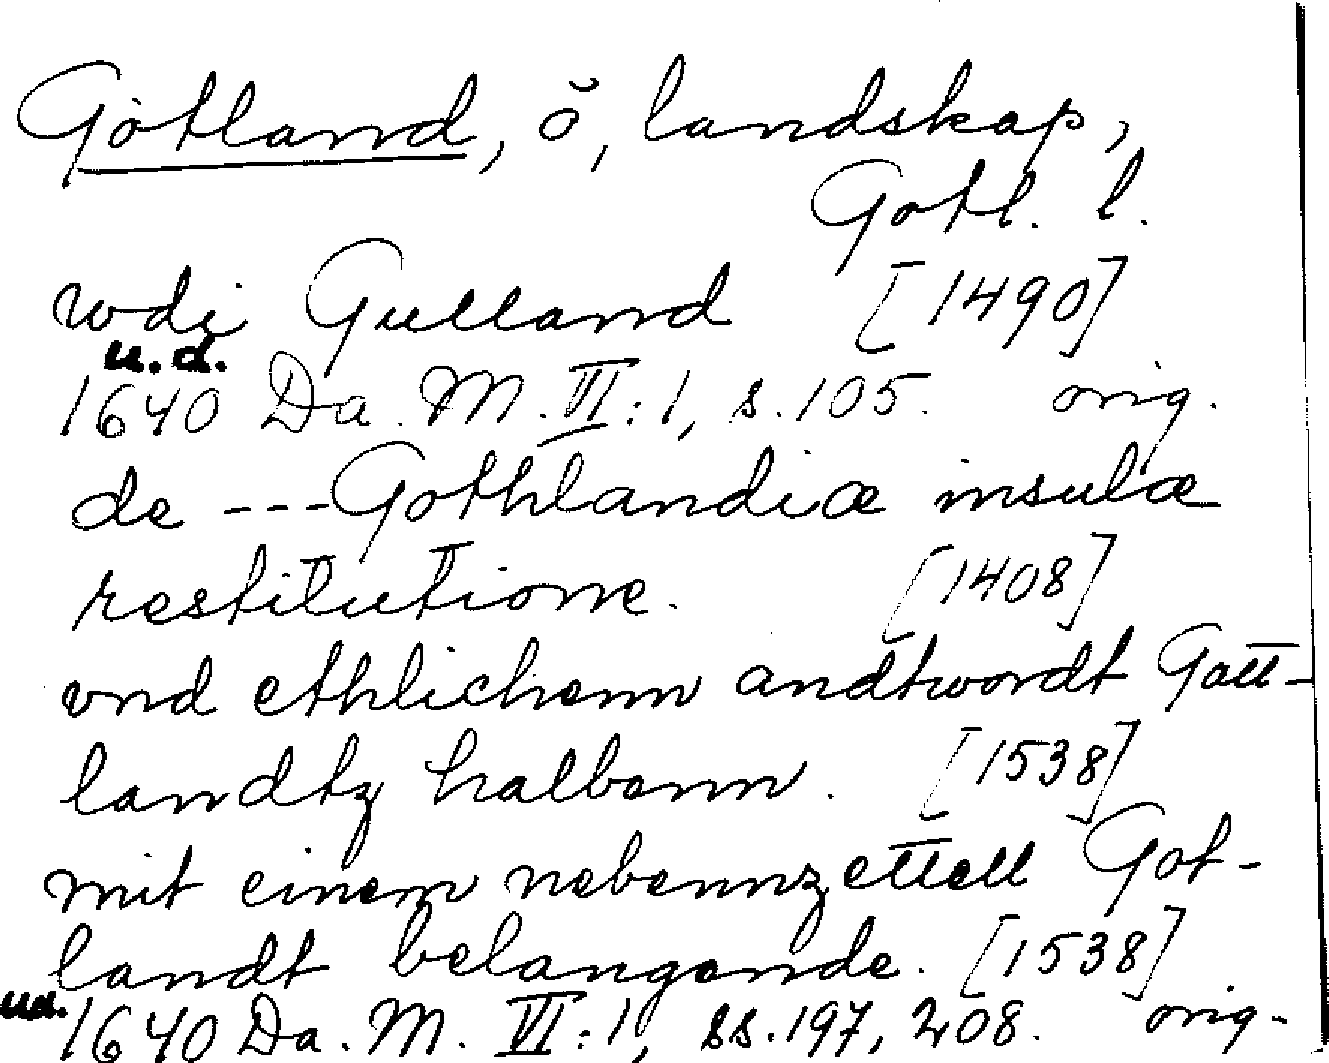 Gotland, ö, landskap,
Gotl. l.
wdi Gulland [1490]
u.d.
1640 Da. M. VI:1, s.105. orig.
de --- Gothlandiæ insulæ
restitutione. [1408]
vnd ethlichenn andtwordt Gott-
landtz halbenn. [1538]
mit einem nebennzettell Got-
landt belangende. [1538]
u.d. 1640 Da. M. VI:1, ss.197, 208. orig.